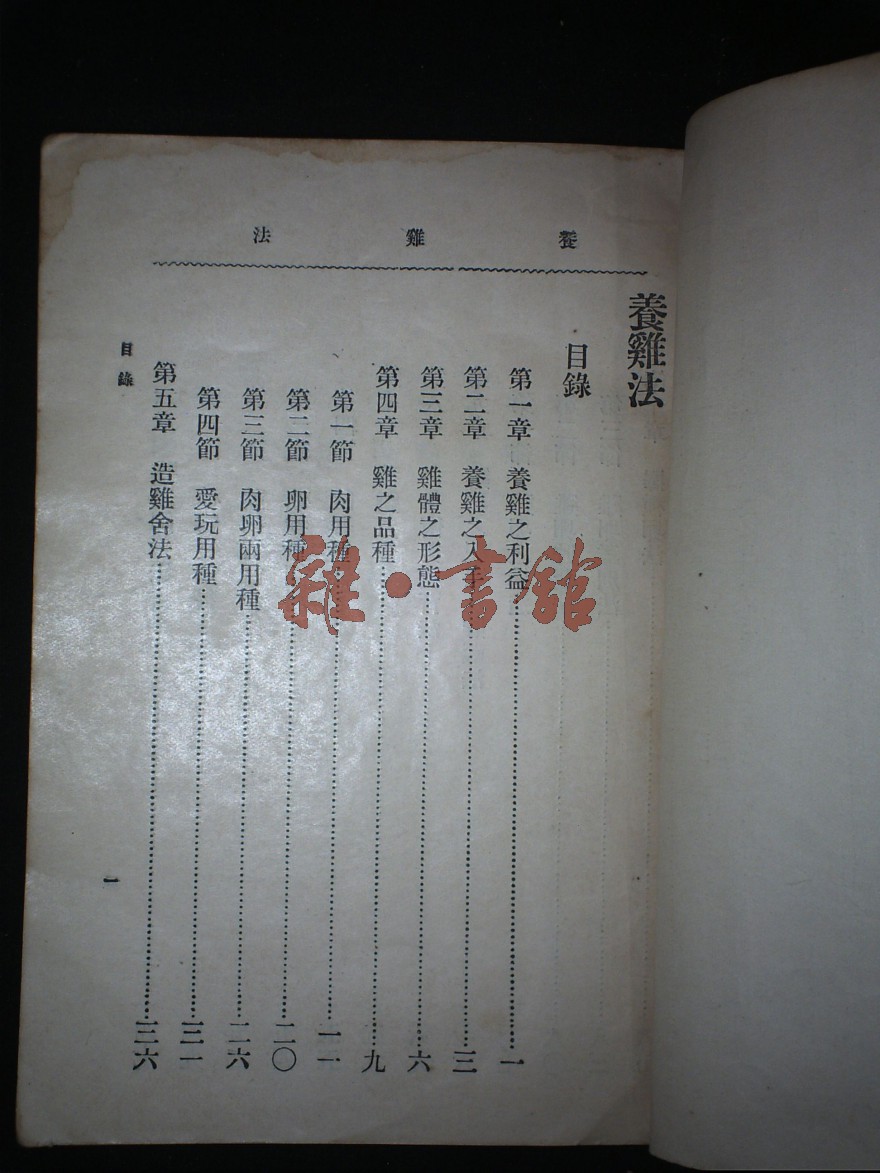 養雞法
養雞法
目錄
第一章 養雞之利益 一
第二章 養雞之入手 三
第三章 雞體之形態 六
第四章 雞之品種 九
第一節 肉用種 一一
第二節 卵用種 二〇
第三節 肉卵兩用種 二六
第四節 愛玩用種 三一
第五章 造雞舍法 三六
目錄
一
雜·書館